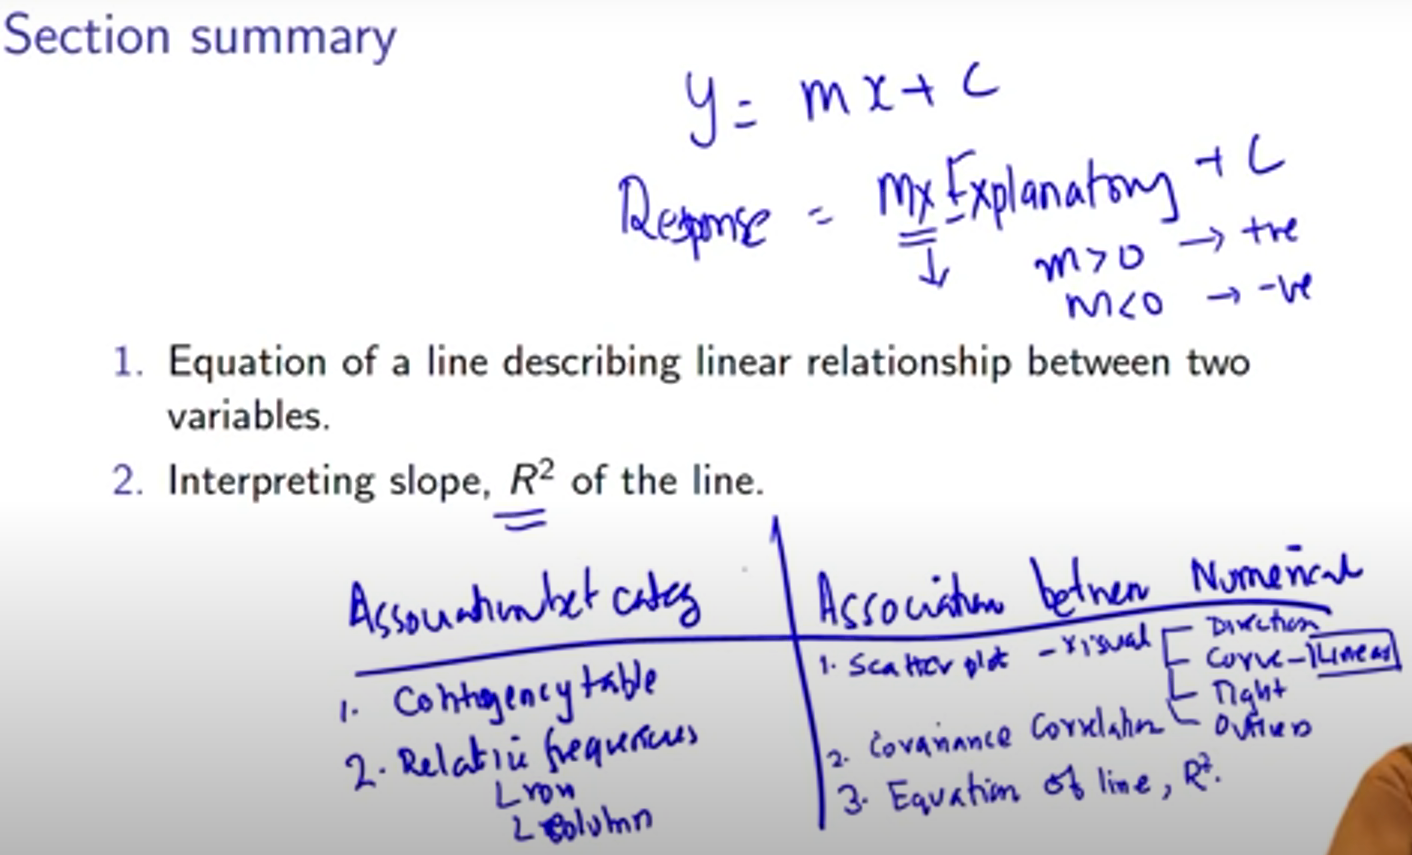 Section summary
y = mx + c
Response = mx Explanatory + c
m>0 → +ve
m<0 → -ve
1. Equation of a line describing linear relationship between two
variables.
2. Interpreting slope, R² of the line.
Association bet categ
1. Contingency table
2. Relative frequencies
row
column
Association between Numerical
1. Scatter plot - visual
Direction
Curve - linear
Tight
Outliers
2. Covariance Correlation
3. Equation of line, R².